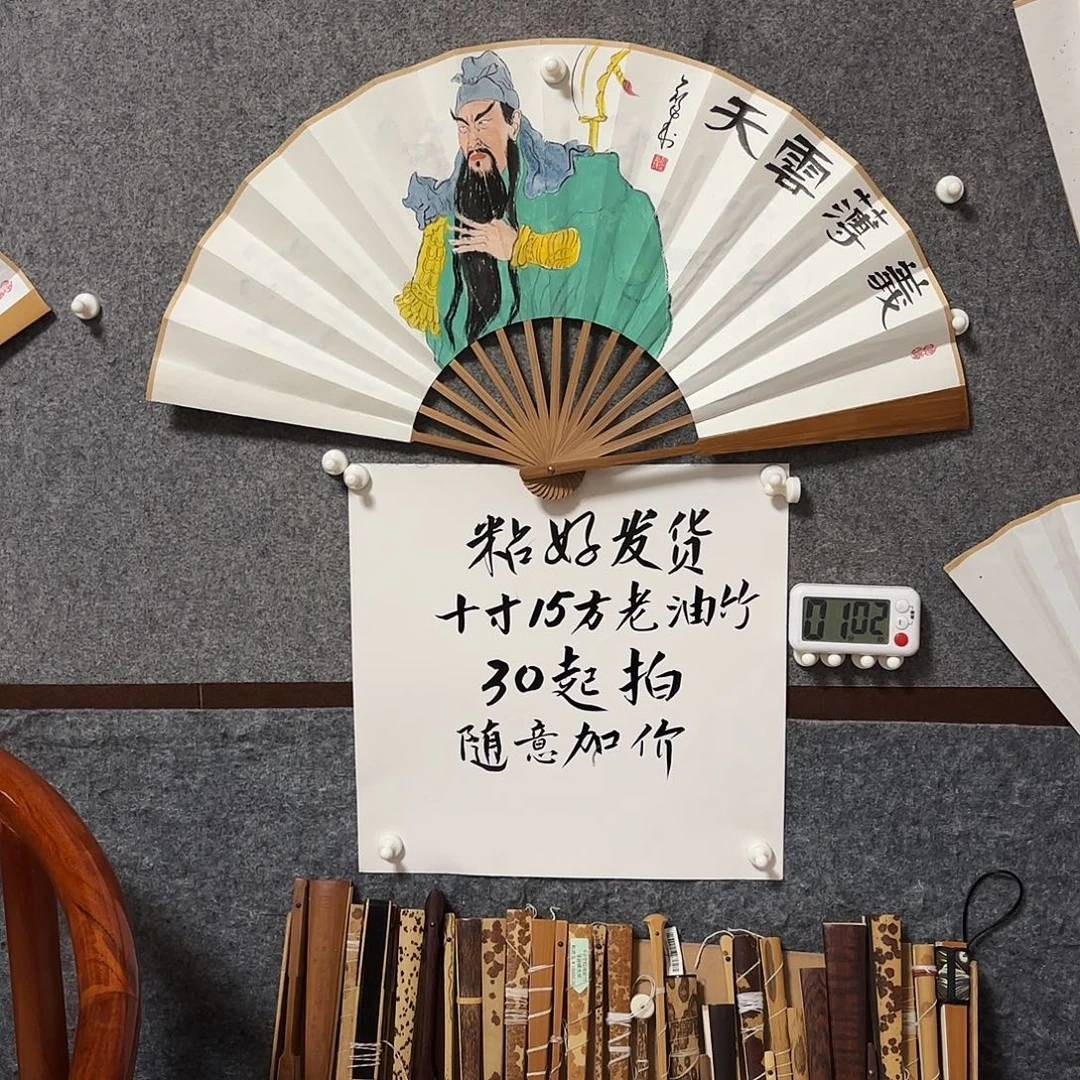 天雲薄義
粘好发货
十寸15方老油竹
30起拍
随意加价
0102